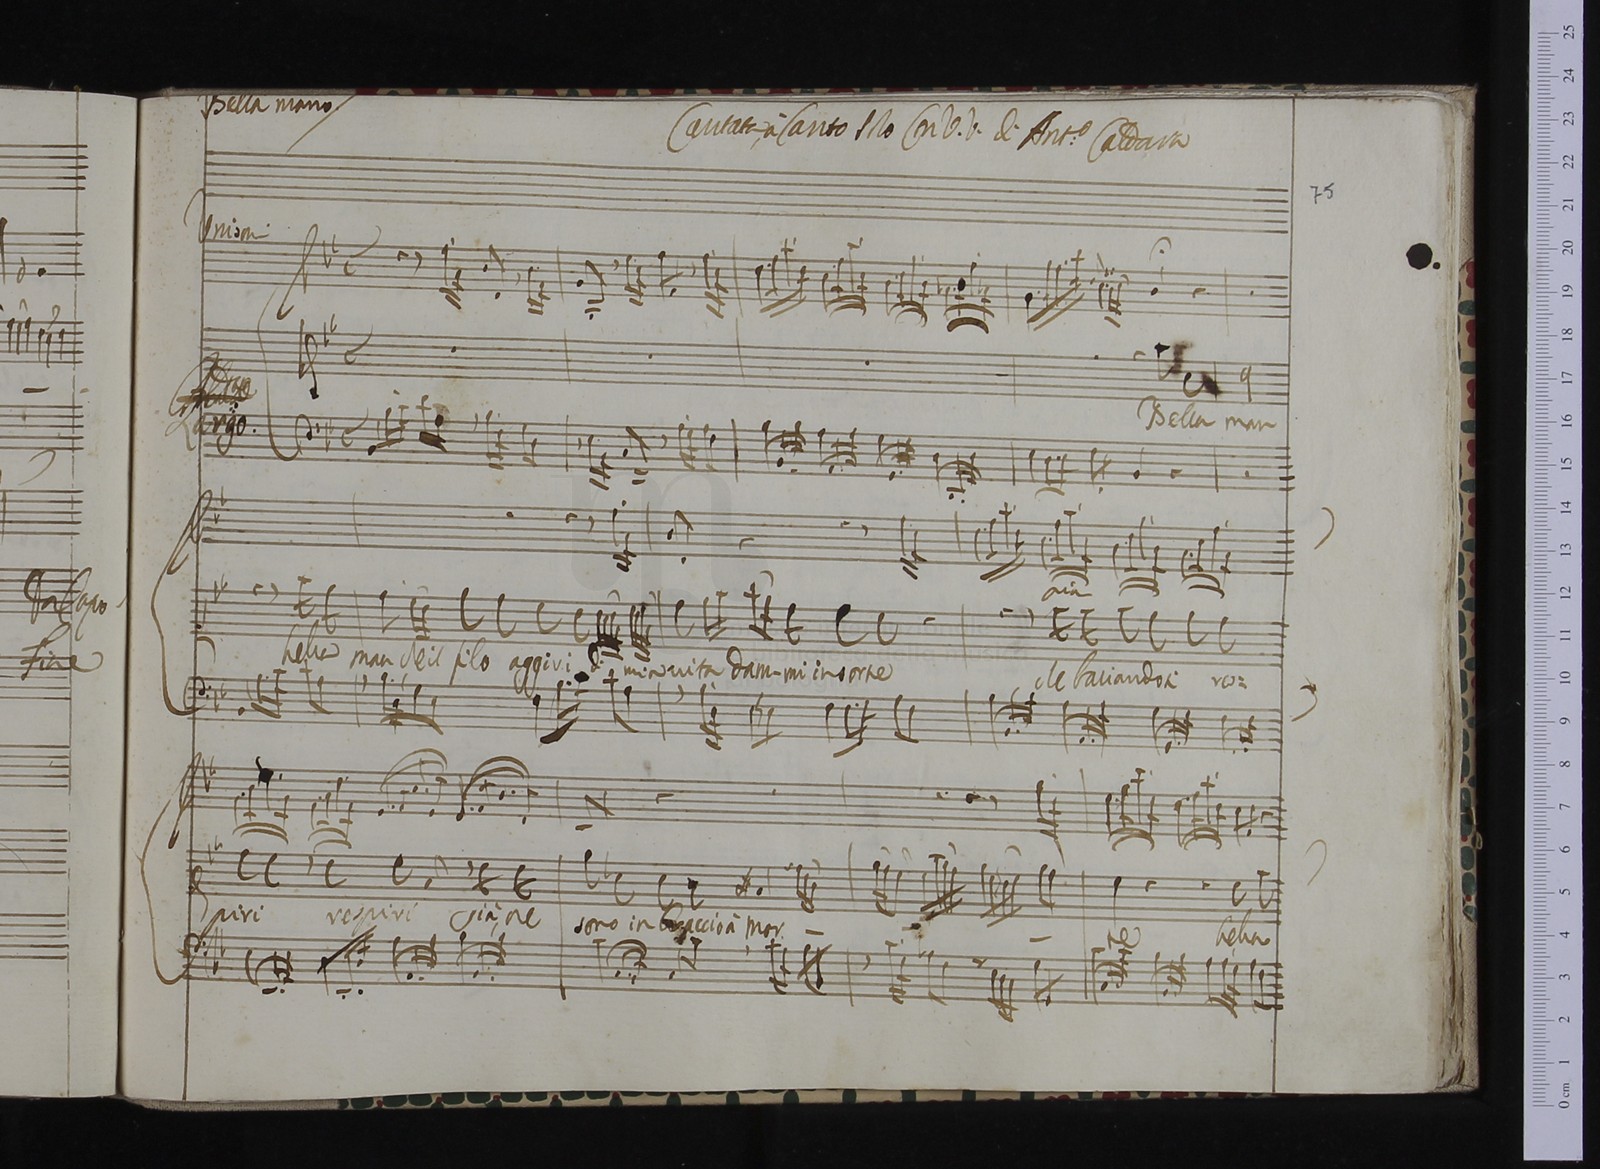 Bella mano
Cantata à Canto Solo Con V.V. di Ant.º Caldara
75
Unisoni
Largo.
Bella man
bella man che il filo aggiri di mia vita dammi in sorte
che baciandoti res=
Da Capo
Fine
piri respiri
sono in braccio à mor.
bella
0 cm 1 2 3 4 5 6 7 8 9 10 11 12 13 14 15 16 17 18 19 20 21 22 23 24 25